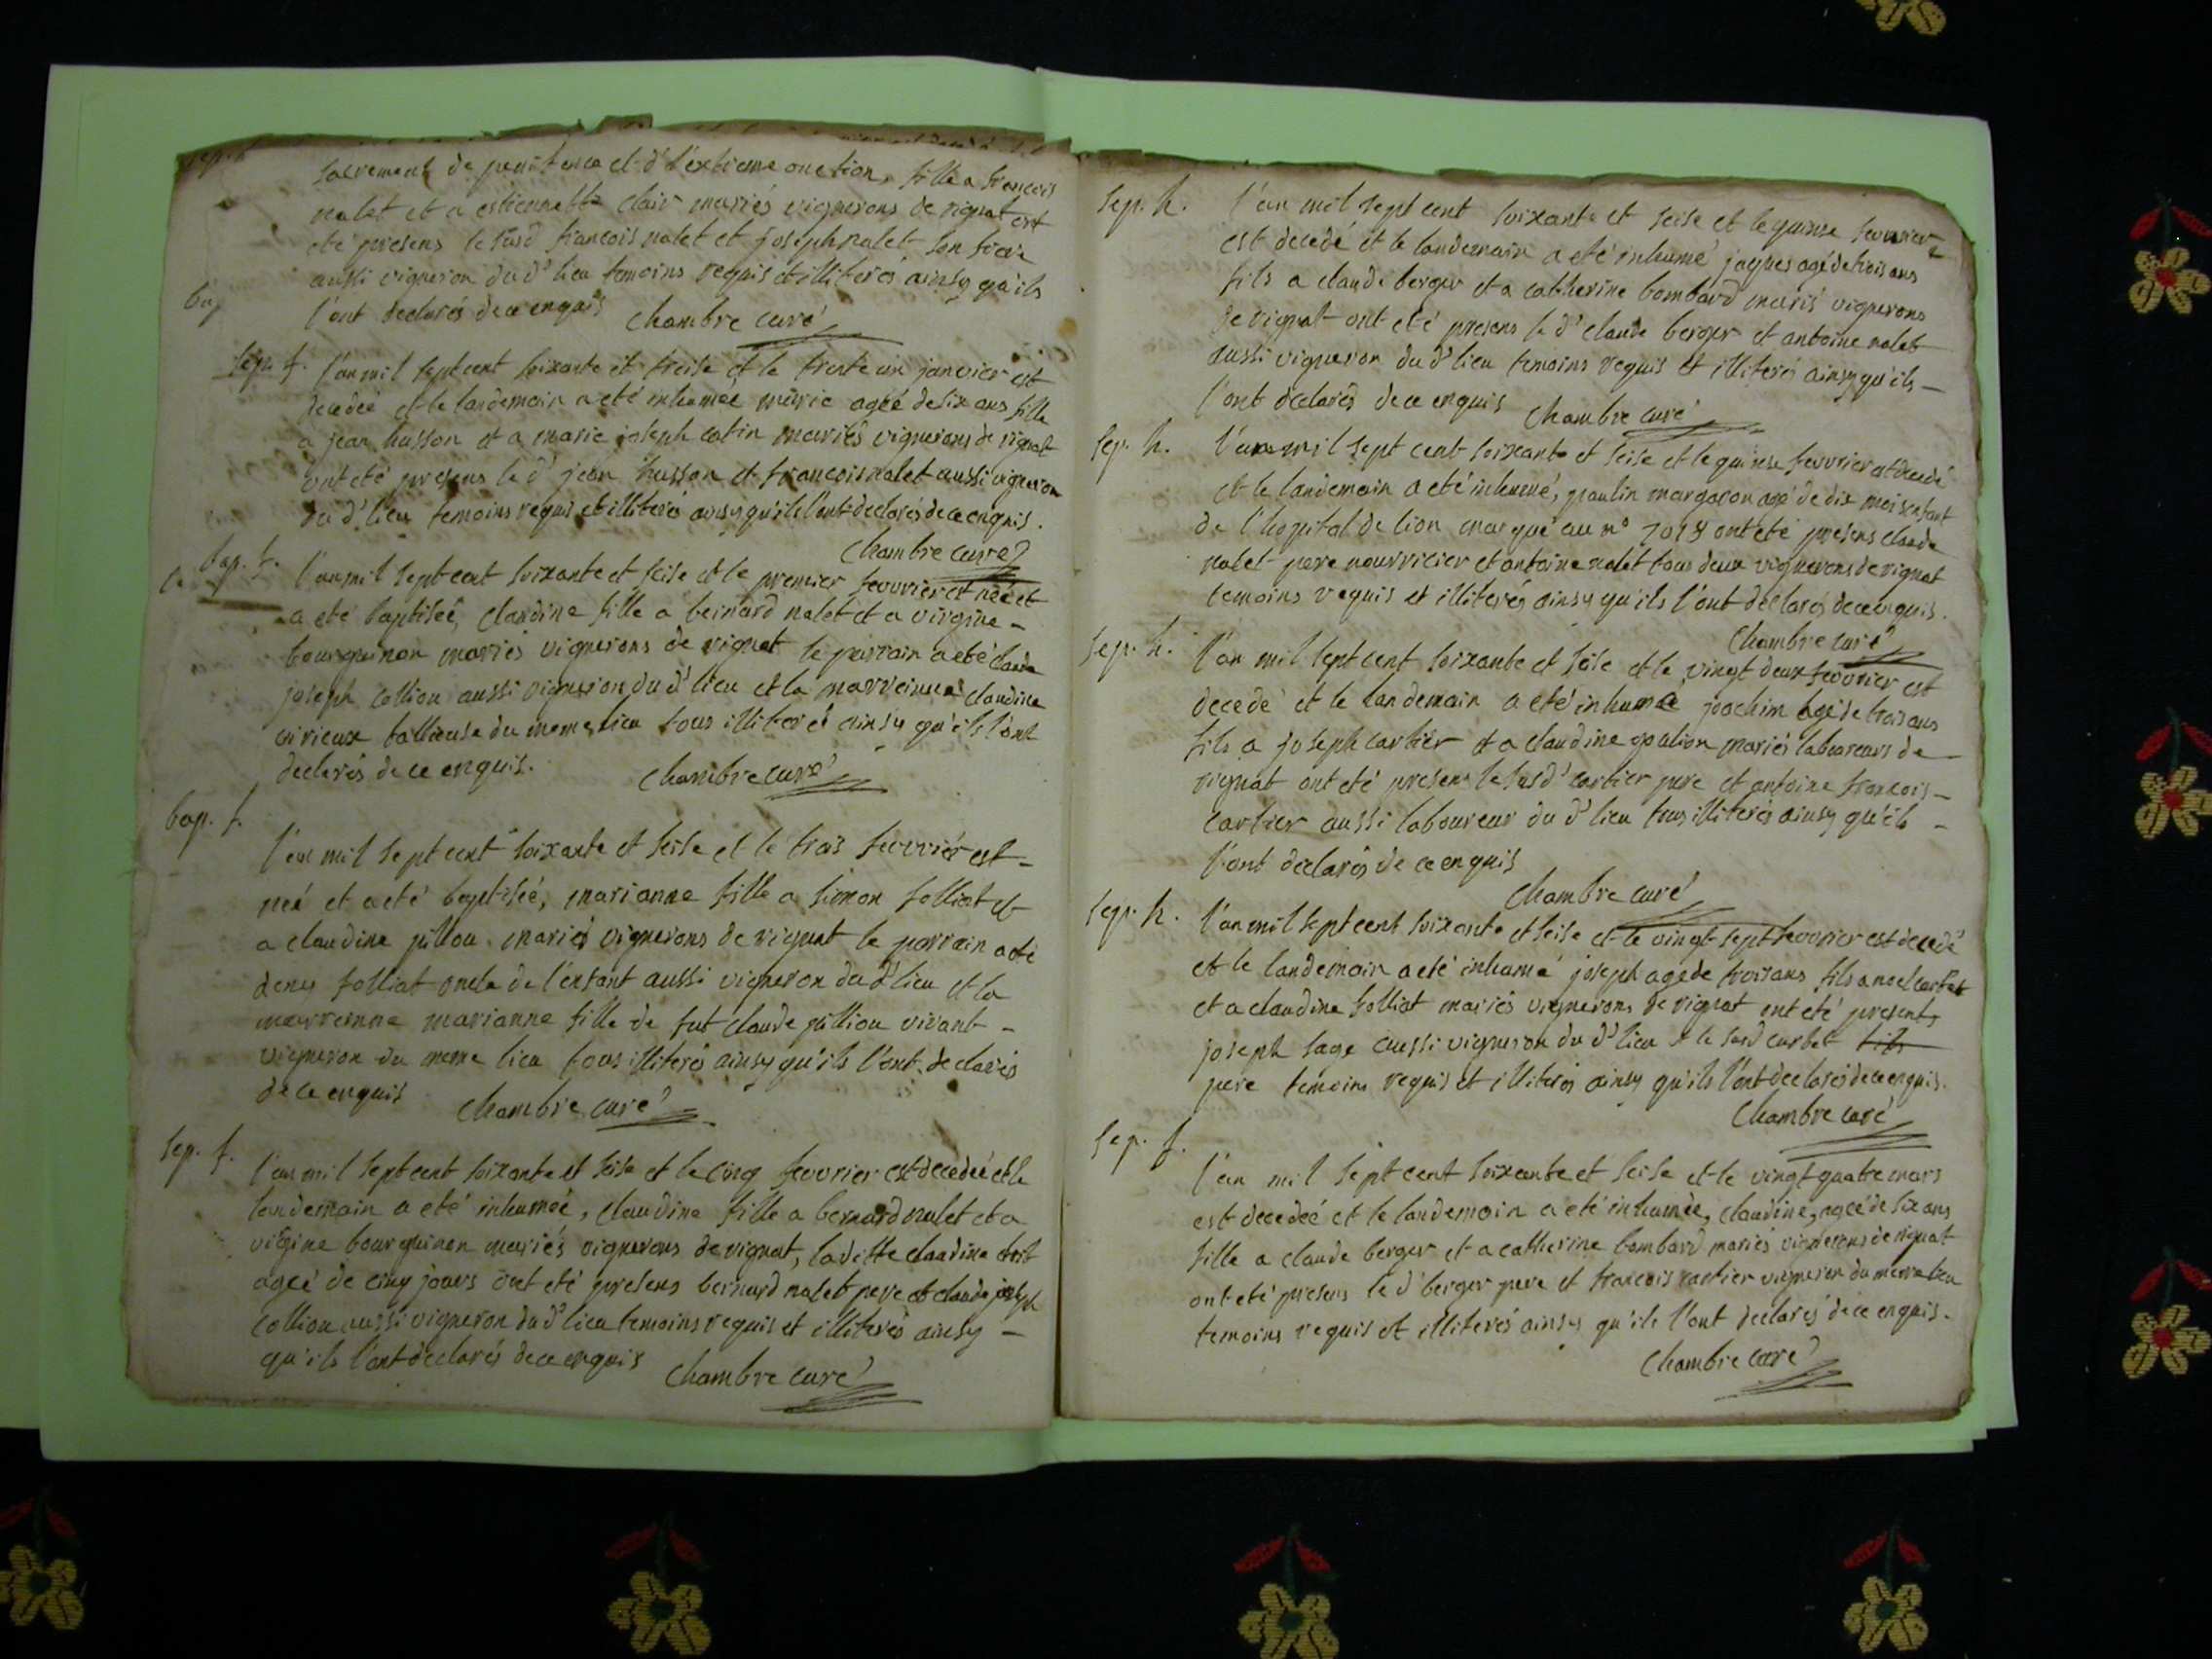 sacrement de penitence et d l'extreme onction, fille a francois
nalet et a estiennette clair mariés vignerons de vignat ont
eté presens le susd francois nalet et joseph nalet son frere
aussi vigneron dud' lieu temoins requis et illiterés ainsy qu'ils
l'ont declarés de ce enquis chambre curé
sep. f. l'an mil sept cent soixante et treise et le trente un janvier est
decedeé et le landemain a eté inhumeé marie ageé de six ans fille
a jean husson et a marie joseph cotin mariés vignerons de vignat
ont eté presens le d' jean husson et francois nalet aussi vigneron
du d' lieu temoins requis et illiterés ainsy qu'ils l'ont declarés de ce enquis.
chambre curé
bap. f. l'an mil sept cent soixante et seise et le premier fevvrier est neé et
a eté baptiseé, claudine fille a bernard nalet et a virgine -
bourguinon mariés vignerons de vignat le parrain a eté claude
joseph collion aussi vigneron du d' lieu et la marreinne claudine
virieux tallieuse du meme lieu tous illiterés ainsy qu'ils l'ont
declarés de ce enquis. chambre curé
bap. f.
l'an mil sept cent soixante et seise et le trois fevvrier est -
neé et a eté baptiseé, marianne fille a simon folliat et
a claudine pillou mariés vignerons de vignat le parrain a eté
denis folliat oncle de l'enfant aussi vigneron du d' lieu et la
marreinne marianne fille de fut claude pillion vivant -
vigneron du meme lieu tous illiterés ainsy qu'ils l'ont declarés
de ce enquis chambre curé
sep. f. l'an mil sept cent soixante et seise et le cinq fevvrier est decedeé et le
landemain a eté inhumeé, claudine fille a bernard nalet et a
virgine bourguinon mariés vignerons de vignat, laditte claudine etoit
ageé de cinq jours ont eté presens bernard nalet pere et claude joseph
collion aussi vigneron du d' lieu temoins requis et illiterés ainsy -
qu'ils l'ont declarés de ce enquis chambre curé
sep. h. l'an mil sept cent soixante et seise et le quinse fevvrier
est decedé et le landemain a eté inhumé jaques agé de trois ans
fils a claude berger et a catherine bombard mariés vignerons
de vignat ont eté presens le d' claude berger et antoine nalet
aussi vigneron du d' lieu temoins requis et illiterés ainsy qu'ils -
l'ont declarés de ce enquis chambre curé
sep. h. l'an mil sept cent soixante et seise et le quinse fevvrier est decedé
et le landemain a eté inhumé, paulin margaron agé de dix mois enfant
de l'hopital de lion marqué au n° 2018 ont eté presens claude
nalet pere nourricier et antoine nalet tous deux vignerons de vignat
temoins requis et illiterés ainsy qu'ils l'ont declarés de ce enquis.
chambre curé
sep. h. l'an mil sept cent soixante et seise et le vingt deux fevvrier est
decedé et le landemain a eté inhumé joachim agé de trois ans
fils a joseph cartier et a claudine goulion mariés laboureurs de
vignat ont eté presens le susd' cartier pere et antoine francois -
cartier aussi laboureur du d' lieu tous illiterés ainsy qu'ils -
l'ont declarés de ce enquis
chambre curé
sep. h. l'an mil sept cent soixante et seise et le vingt sept fevvrier est decedé
et le landemain a eté inhumé joseph agé de trois ans fils a noel carbet
et a claudine folliat mariés vignerons de vignat ont eté presents
joseph sage aussi vigneron du d' lieu et le susd carbet fils
pere temoins requis et illiterés ainsy qu'ils l'ont declarés de ce enquis.
chambre curé
sep. f.
l'an mil sept cent soixante et seise et le vingt quatre mars
est decedeé et le landemain a eté inhumeé, claudine, ageé de six ans
fille a claude berger et a catherine bombard mariés vignerons de vignat
ont eté presens le d' berger pere et francois cartier vigneron du meme lieu
temoins requis et illiterés ainsy qu'ils l'ont declarés de ce enquis.
chambre curé